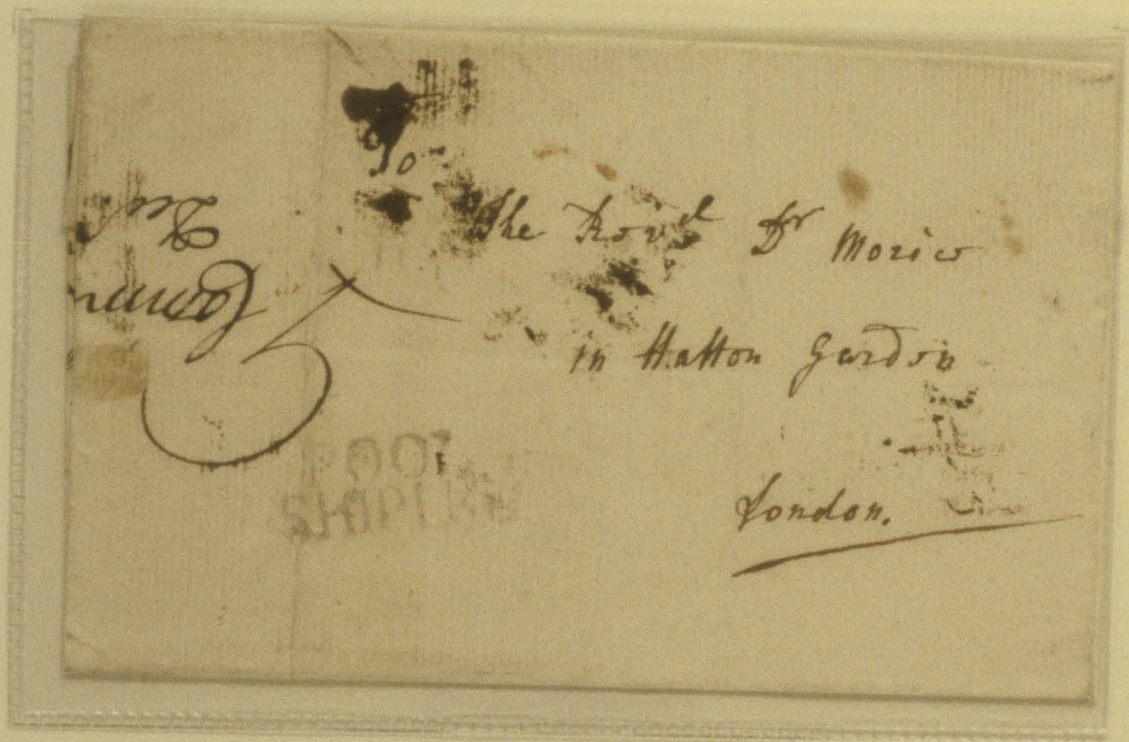 To
The Rev.d Dr Morice
in Hatton Garden
London.
POOL
SHIP LRE